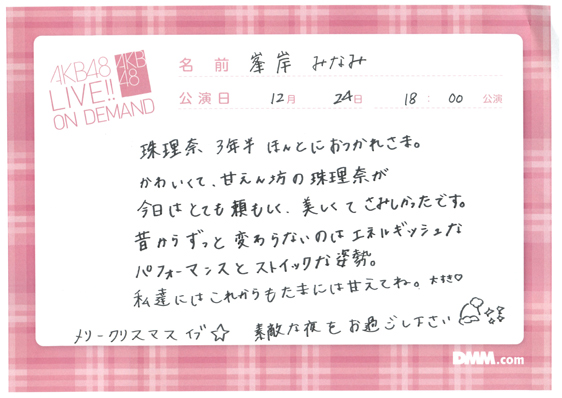 AKB48
LIVE!!
ON DEMAND
AKB
48
名前 峯岸 みなみ
公演日 12月 24日 18 : 00 公演
珠理奈 3年半 ほんとにおつかれさま。
かわいくて、甘えん坊の珠理奈が
今日はとても頼もしく、美しくてさみしかったです。
昔からずっと変わらないのはエネルギッシュな
パフォーマンスとストイックな姿勢。
私達にはこれからもたまには甘えてね。大好き♡
メリークリスマスイブ☆ 素敵な夜をお過ごし下さい
DMM.com